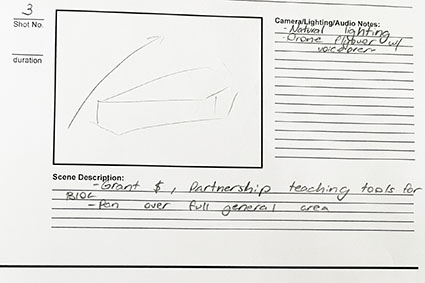 3
Shot No.
duration
Camera/Lighting/Audio Notes:
- Natural lighting
- Drone flyover w/
voiceover
Scene Description:
- Grant $, Partnership teaching tools for
BIOL
- Pan over full general area